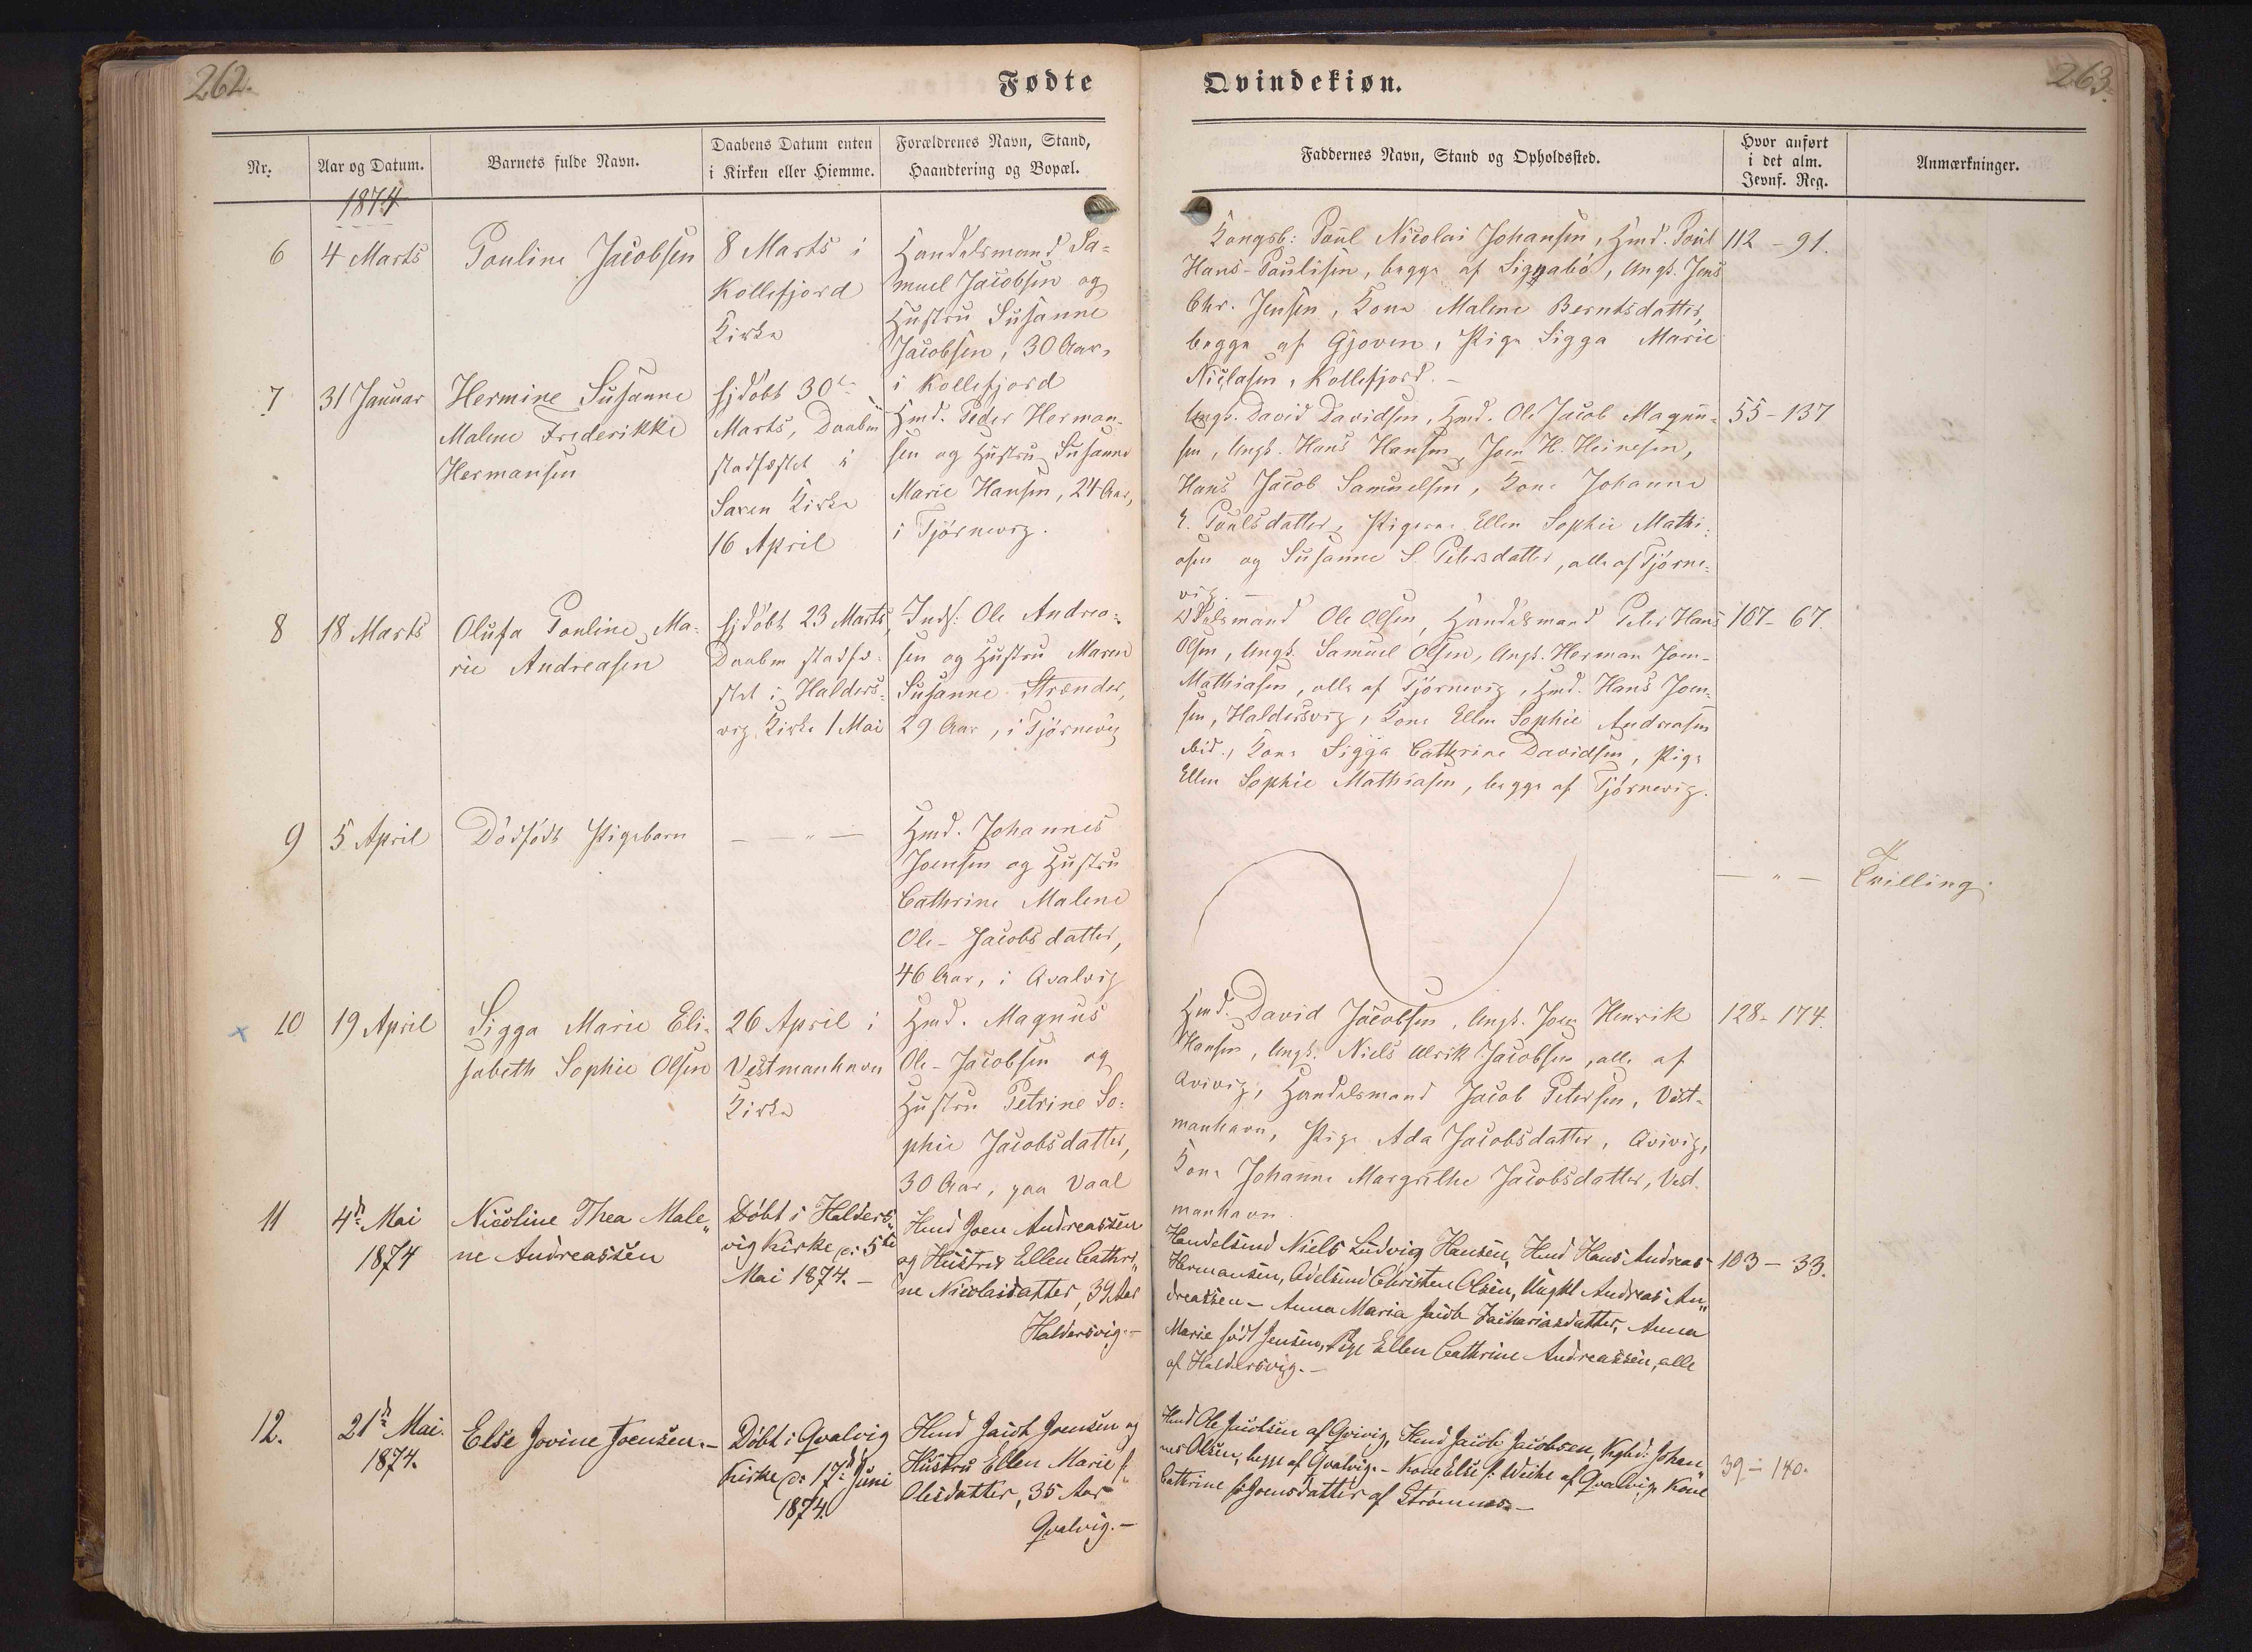 262.
Fødte
Nr.
Aar og Datum.
Barnets fulde Navn.
Daabens Datum enten
i Kirken eller Hiemme.
Forældrenes Navn, Stand,
Haandtering og Bopæl.
1874
6
4 Marts
Pouline Jacobsen
8 Marts i
Kollefjord
Kirke
Handelsmand Sa-
muel Jacobsen og
Hustru Susanne
Jacobsen, 30 Aar,
i Kollefjord
7
31 Januar
Hermine Susanne
Malene Frederikke
Hermansen
hjdøbt 30te
Marts, Daaben
stadfæstet i
Saxen Kirke
16 April
Hmd. Peder Herman-
sen og Hustru Susanne
Marie Hansen, 24 Aar,
i Tjørnevig.
8
18 Marts
Olufa Pouline Ma-
rie Andreasen
hjdøbt 23 Marts,
Daaben stadfæ-
stet i Halders-
vig Kirke 1 Mai
Inds: Ole Andrea-
sen og Hustru Maren
Susanne Strænder,
29 Aar, i Tjørnevig
9
5 April
Dødfødt Pigebarn
— " —
Hmd. Johannes
Joensen og Hustru
Cathrine Malene
Ole-Jacobsdatter,
46 Aar, i Qvalvig
10
19 April
Sigga Marie Eli-
sabeth Sophie Olsen
26 April i
Vestmanhavn
Kirke
Hmd. Magnus
Ole-Jacobsen og
Hustru Petrine So-
phie Jacobsdatter,
30 Aar, paa Vaal
11
4de Mai
1874
Nicoline Thea Male„
ne Andreassen
Døbt i Halders„
vig Kirke d: 5te
Mai 1874. —
Hmd Joen Andreassen
og Hustru Ellen Cathri„
ne Nicolaidatter, 39 Aar
Haldersvig. —
12.
21de Mai.
1874.
Else Jovine Joensen. —
Døbt i Qvalvig
Kirke d: 17de Juni
1874.
Hmd Jacob Joensen og
Hustru Ellen Marie f.
Olesdatter, 35 Aar
Qvalvig. —
Qvindekiøn.
263.
Faddernes Navn, Stand og Opholdssted.
Hvor anført
i det alm.
Jevnf. Reg.
Anmærkninger.
Kongsb: Poul Nicolai Johansen, Hmd. Poul
Hans-Poulisen, begge af Signabø, Ungk. Jens
Chr. Jensen, Kone Malene Berntsdatter,
begge af Gjoven, Pige Sigga Marie
Niclasen, Kollefjord. —
112 - 91.
Ungk. David Davidsen, Hmd. Ole Jacob Magnu-
sen, Ungk. Hans Hansen, Joen H. Heinesen,
Hans Jacob Samuelsen, Kone Johanne
E. Poulsdatter, Pigerne Ellen Sophie Mathi-
asen og Susanne S. Petersdatter, alle af Tjørne-
vig. —
55 - 137
Odelsmand Ole Olsen, Handelsmand Peter Hans
Olsen, Ungk. Samuel Olsen, Ungk. Herman Joen-
Mathiasen, alle af Tjørnevig, Hmd. Hans Joen-
sen, Haldersvig, Kone Ellen Sophie Andreasen
ibid., Kone Sigga Cathrine Davidsen, Pige
Ellen Sophie Mathiasen, begge af Tjørnevig.
107 - 67.
— " —
Tvilling.
Hmd. David Jacobsen, Ungk. Joen Henrik
Hansen, Ungk. Niels Ulrik Jacobsen, alle af
Qvivig, Handelsmand Jacob Petersen, Vest-
manhavn, Pige Ada Jacobsdatter, Qvivig,
Kone Johanne Margrethe Jacobsdatter, Vest-
manhavn.
128 - 174.
Handelsmd Niels Ludvig Hansen, Hmd Hans Andreas
Hermansen, Odelsmd Christen Olsen, Ungkl Andreas An„
dreassen — Anna Maria Jacob Zachariasdatter, Anna
Marie født Jensen, Pige Ellen Cathrine Andreassen, alle
af Haldersvig. —
103 — 33.
Hmd Ole Jacobsen af Qvivig, Hmd Jacob Jacobsen, Kgbd: Johan„
nes Olsen, begge af Qvalvig. — Kone Else f. Weihe af Qvalvig, Kone
Cathrine f. Joensdatter af Strømnæs. —
39 - 140.